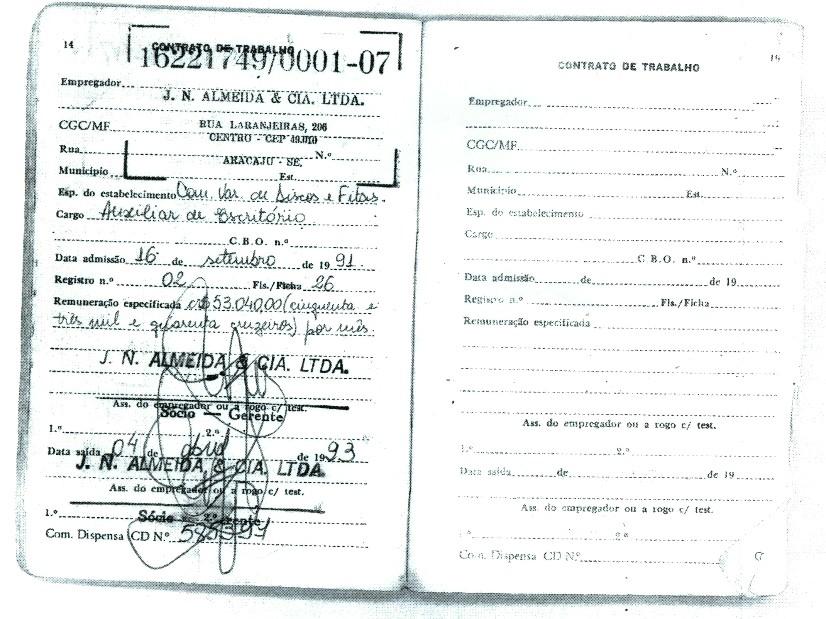 14
CONTRATO DE TRABALHO
16221749/0001-07
Empregador
J. N. ALMEIDA & CIA. LTDA.
CGC/MF RUA LARANJEIRAS, 206
CENTRO - CEP 49.010
Rua N.º
ARACAJU - SE.
Município Est.
Esp. do estabelecimento Com. Var. de Discos e Fitas.
Cargo Auxiliar de Escritório
C.B.O. n.º
Data admissão 16 de setembro de 1991.
Registro n.º 02 Fls./Ficha 26
Remuneração especificada Cr$ 53.040,00 (cinquenta e
três mil e quarenta cruzeiros) por mês.
J. N. ALMEIDA & CIA. LTDA.
Ass. do empregador ou a rogo c/ test.
Sócio — Gerente
1.º 2.º
Data saída 04 de abril de 1993
J. N. ALMEIDA & CIA. LTDA.
Ass. do empregador ou a rogo c/ test.
1.º 2.º
Sócio — Gerente
Com. Dispensa CD N.º
15
CONTRATO DE TRABALHO
Empregador
CGC/MF
Rua N.º
Município Est.
Esp. do estabelecimento
Cargo
C.B.O. n.º
Data admissão de de 19
Registro n.º Fls./Ficha
Remuneração especificada
Ass. do empregador ou a rogo c/ test.
1.º 2.º
Data saída de de 19
Ass. do empregador ou a rogo c/ test.
1.º 2.º
Com. Dispensa CD N.º